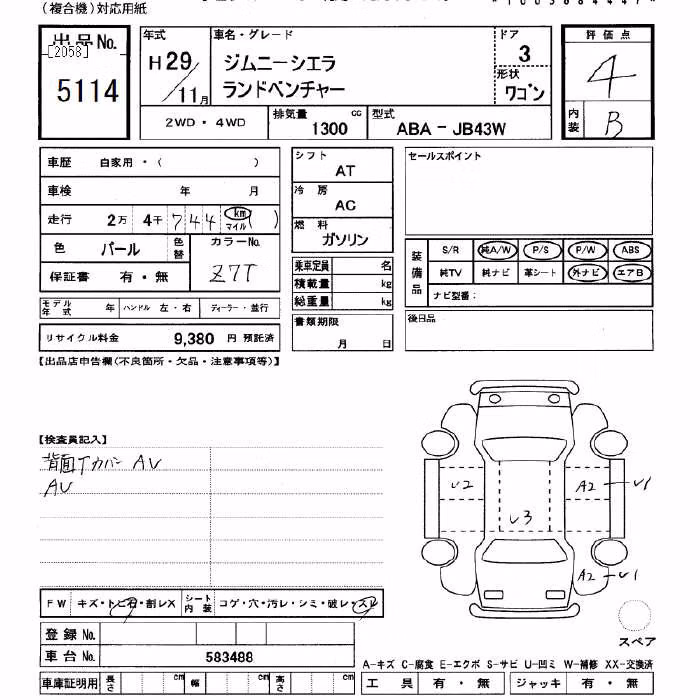 (複合機)対応用紙
出品No.
[2058]
5114
年式
H 29/11月
車名・グレード
ジムニーシエラ
ランドベンチャー
ドア
3
形状
ワゴン
評価点
4
内装
B
2WD・4WD
排気量 1300 cc
型式 ABA-JB43W
車歴 自家用・( )
車検 年 月
走行 2万 4千 744 km マイル ( )
色 パール 色替
カラーNo.
Z7T
保証書 有・無
モデル年式 年 ハンドル 左・右 ディーラー・並行
リサイクル料金 9,380 円 預託済
シフト
AT
冷房
AC
燃料
ガソリン
乗車定員 名
積載量 kg
総重量 kg
書類期限
月 日
セールスポイント
装備品
S/R 純A/W P/S P/W ABS
純TV 純ナビ 革シート 外ナビ エアB
ナビ型番:
後日品
【出品店申告欄(不良箇所・欠品・注意事項等)】
【検査員記入】
背面Tカバー AU
AU
U2
A2 U1
U3
A2 U1
FW キズ・トビ石・割レX
シート内装 コゲ・穴・汚レ・シミ・破レ・スレ
登録No.
車台No. 583488
車庫証明用 長さ cm 幅 cm 高さ cm
スペア
A-キズ C-腐食 E-エクボ S-サビ U-凹ミ W-補修 XX-交換済
工具 有・無 ジャッキ 有・無